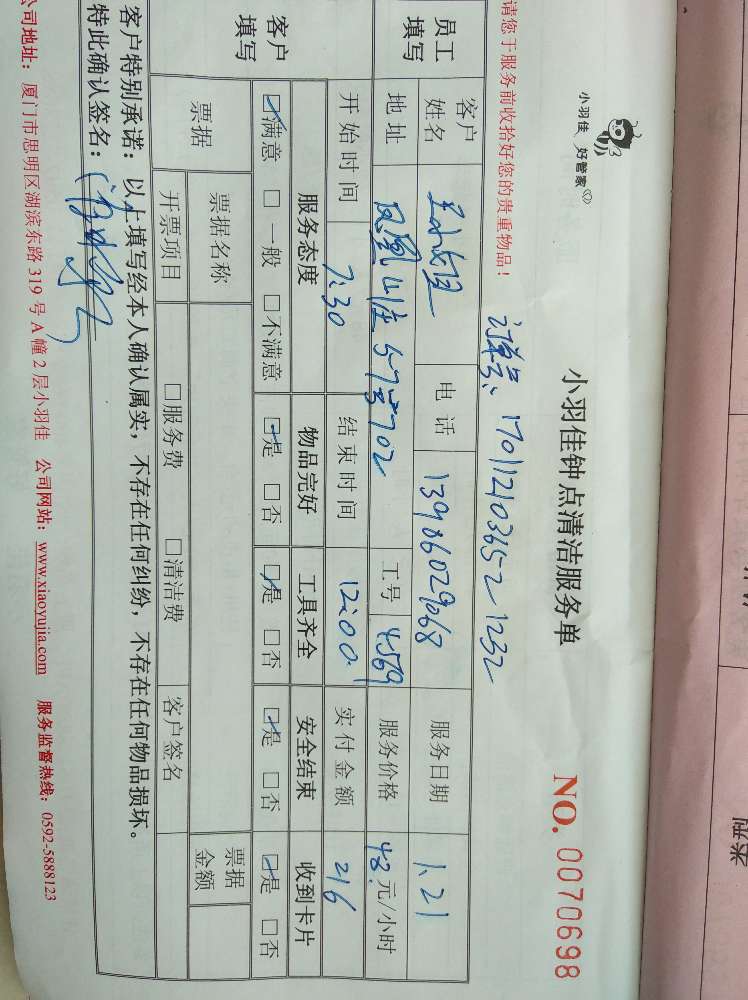 小羽佳 好管家
小羽佳钟点清洁服务单
NO. 0070698
请您于服务前收拾好您的贵重物品!
订单号: 1701121036521232
员工填写
客户姓名 王小姐 电话 13906029068 服务日期 1.21
地址 凤凰山庄57号702 工号 4569 服务价格 48元/小时
开始时间 7:30 结束时间 12:00 实付金额 216
客户填写
服务态度 物品完好 工具齐全 安全结束 收到卡片
☑满意 □一般 □不满意 ☑是 □否 ☑是 □否 ☑是 □否 ☑是 □否
票据 票据名称 票据金额
开票项目 □服务费 □清洁费 客户签名
客户特别承诺:以上填写经本人确认属实,不存在任何纠纷,不存在任何物品损坏。
特此确认签名:
公司地址:厦门市思明区湖滨东路319号A幢2层小羽佳 公司网站:www.xiaoyujia.com 服务监督热线:0592-5888123